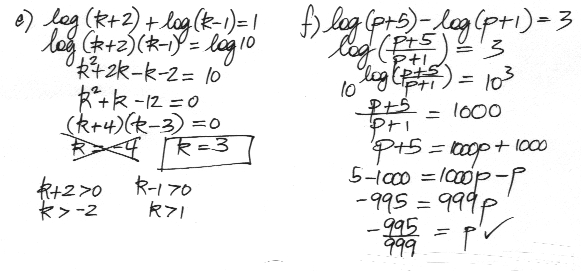 e) log(k+2) + log(k-1) = 1
log(k+2)(k-1) = log 10
k²+2k-k-2 = 10
k²+k-12 = 0
(k+4)(k-3) = 0
k=-4 k=3
k+2>0 k-1>0
k>-2 k>1
f) log(p+5) - log(p+1) = 3
log(p+5/p+1) = 3
10^log(p+5/p+1) = 10³
p+5/p+1 = 1000
p+5 = 1000p + 1000
5-1000 = 1000p-p
-995 = 999p
-995/999 = p ✓